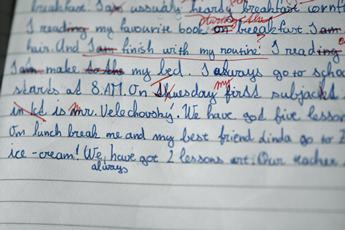 breakfast. I am usually heardy breakfast cornfl
during the
I reading my favourite book on breakfast. I am
hair. And I am finish with my routine. I reading
I am make to the my bed. I always go to scho
starts at 8 AM. On Thuesday my first subjackt
in kd is mr. Velechovský. We have god five lesson
On lunch break me and my best friend Linda go to
ice-cream! We have got 2 lessons art. Our teacher
always